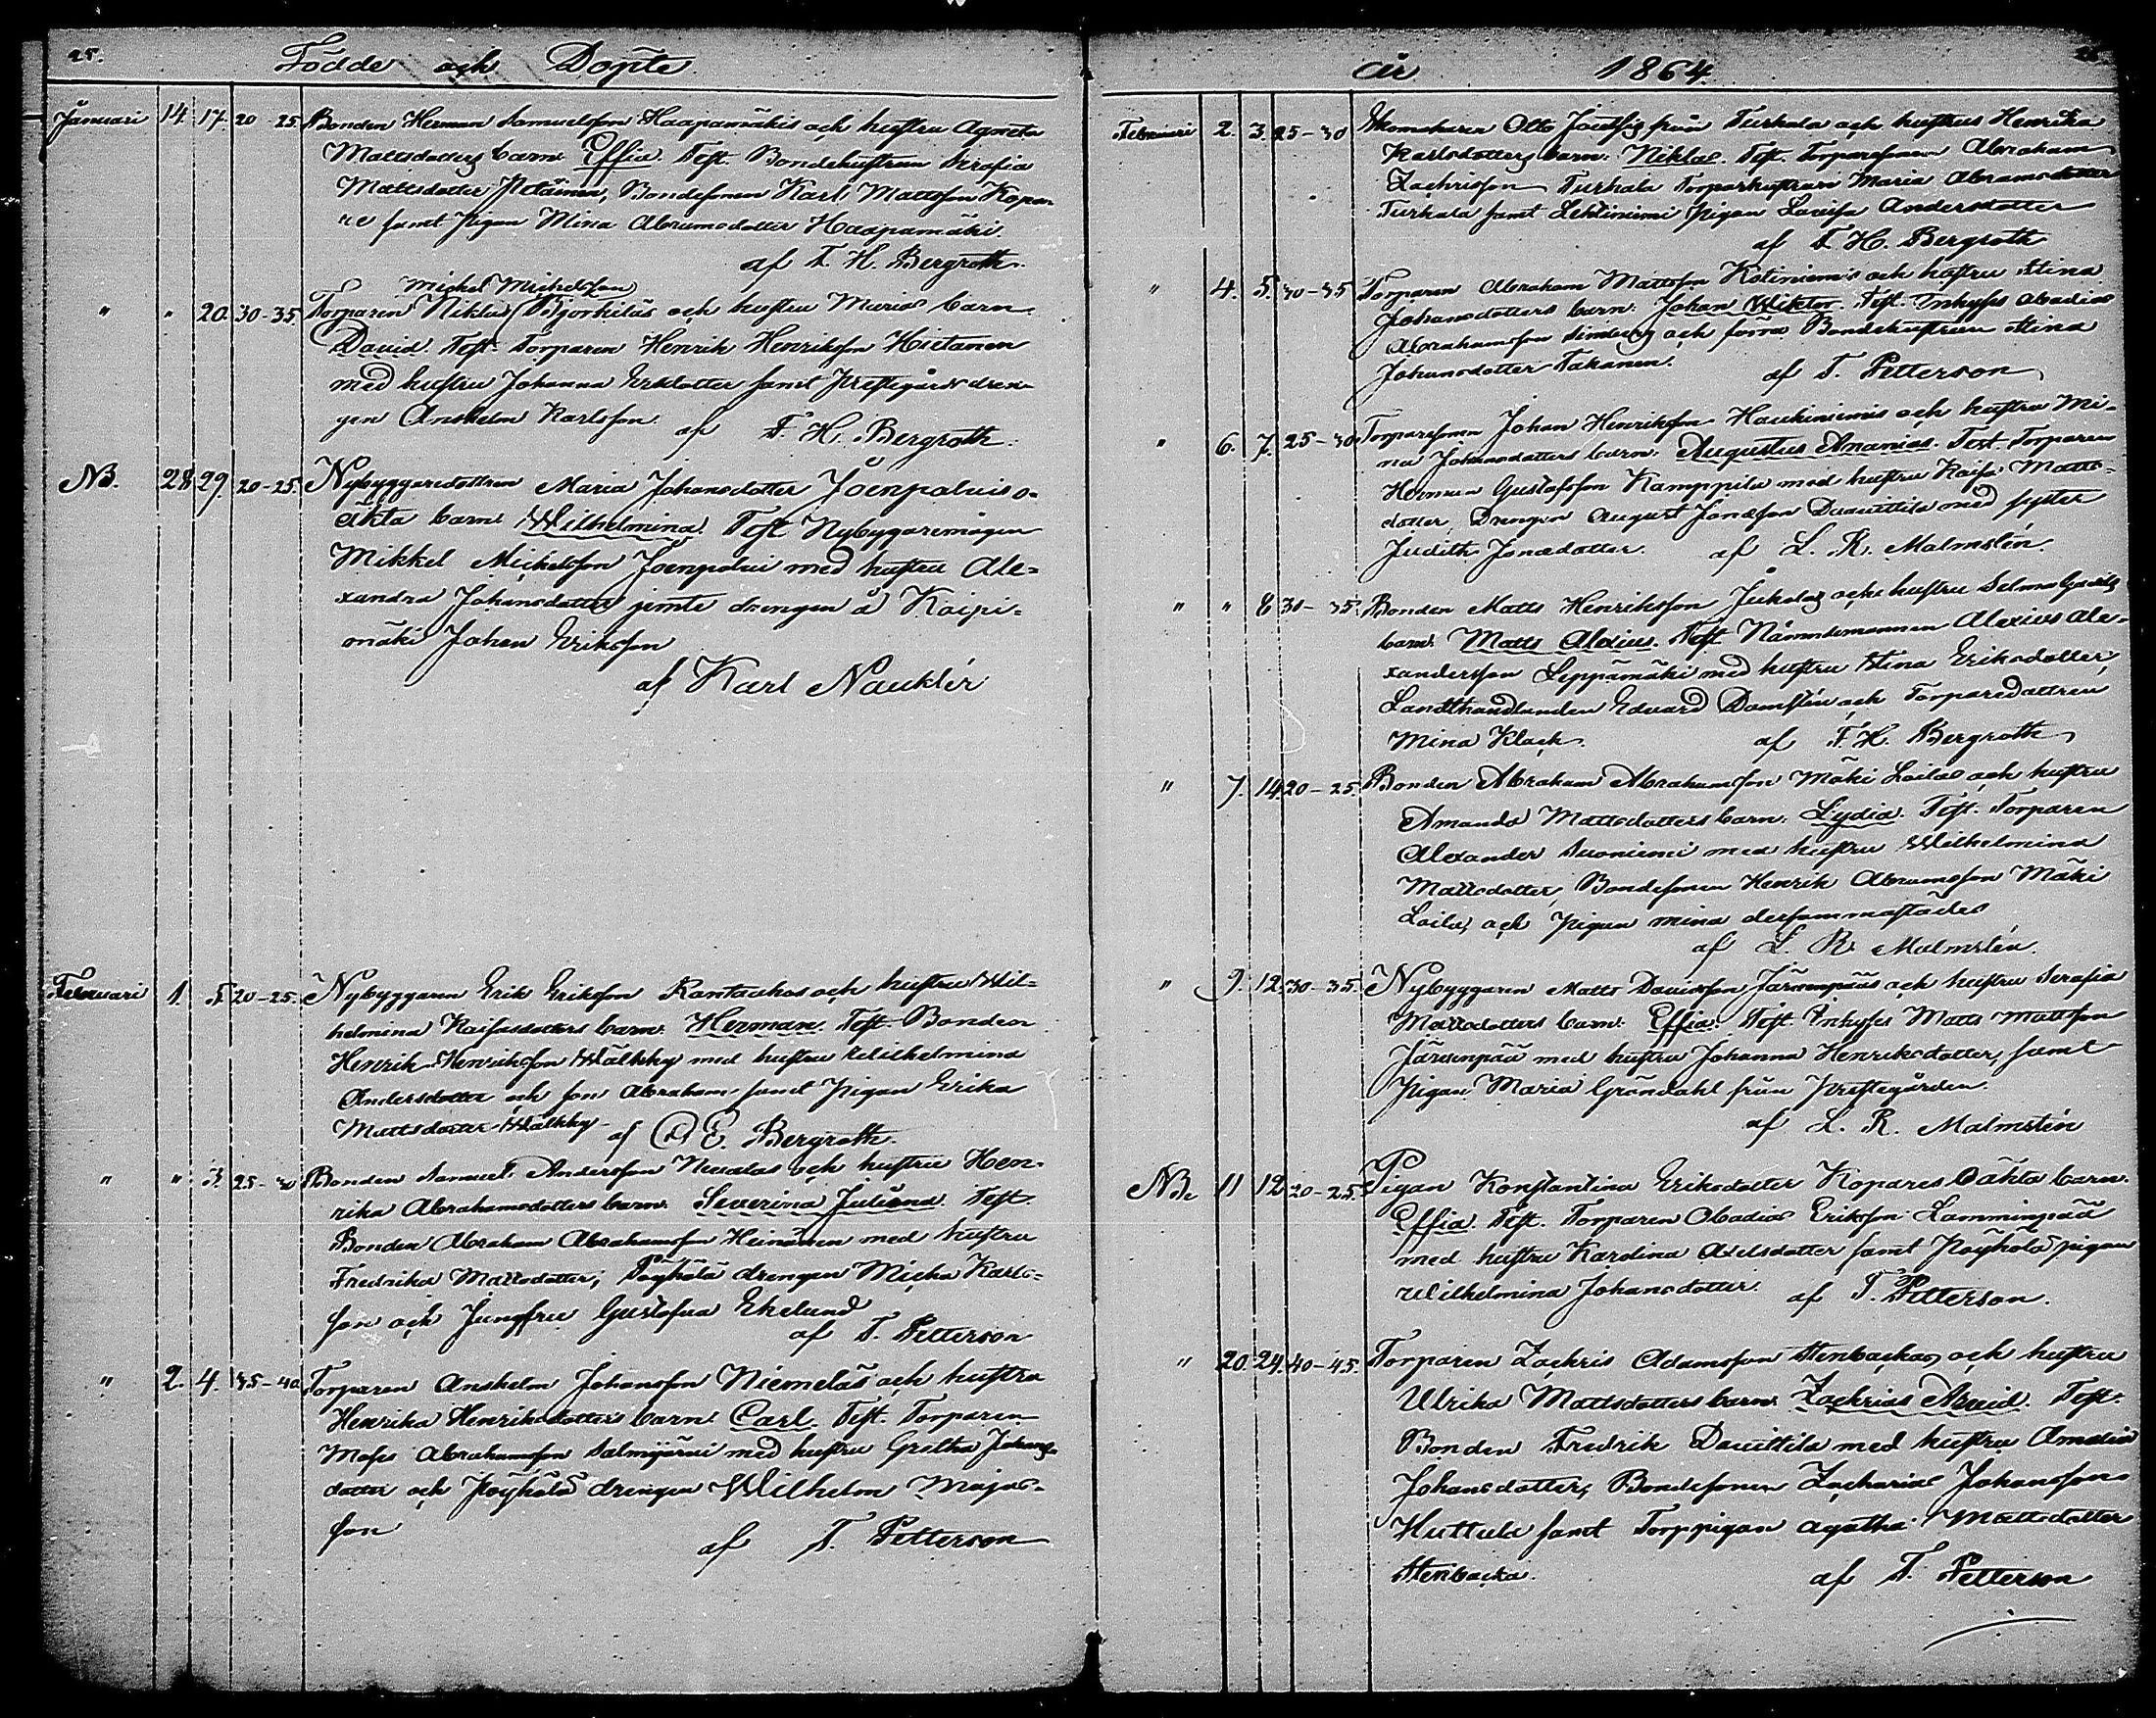 25.
Födde och Döpte
Januari 14 17. 20-25. Bonden Herman Samuelsson Haapamäkis och hustru Agneta
Mattsdotters barn Effia. Test. Bondehustrun Serafia
Mattsdotter Petäinen, Bondesonen Karl Mattsson Kopa-
re samt Pigan Mina Abramsdotter Haapamäki
af F. H. Bergroth.
Michel Michelsson
" " 20. 30-35. Torparen Niklas Björkiläs och hustru Marias barn
David. Test. Torparen Henrik Henriksson Hietanen
med hustru Johanna Ersdotter samt Prestgårds dren-
gen Anshelm Karlsson. af F. H. Bergroth.
NB. 28 29. 20-25. Nybyggaredottren Maria Johansdotter Joenpoluis o-
äkta barn Wilhelmina. Test Nybyggaremågen
Mikkel Michelsson Joenpolvi med hustru Ale-
xandra Johansdotter jemte drengen å Koipi-
mäki Johan Eriksson
af Karl Nauklér
Februari 1. 5. 20-25. Nybyggaren Erik Eriksson Rantauhos och hustru Wil-
helmina Kaisasdotters barn. Herman. Test. Bonden
Henrik Henriksson Wälkky med hustru Wilhelmina
Andersdotter och son Abraham samt Pigan Erika
Mattsdotter Wälkky. af E. Bergroth.
" " 3. 25-30 Bonden Samuel Andersson Neualas och hustru Hen-
rika Abrahamsdotters barn. Severina Juliana. Test.
Bonden Abraham Abrahamsson Heinänen med hustru
Fredrika Mattsdotter, Pöyhölä drengen Micha Karls-
son och Jungfru Gustafva Ekelund
af T. Petterson
" 2. 4. 35-40. Torparen Anshelm Johansson Niemeläs och hustru
Henrika Henriksdotters barn. Carl. Test. Torparen
Moses Abrahamsson Salmijärvi med hustru Gretha Johans-
dotter och Pöyhölä drengen Wilhelm Majas-
son
af T. Petterson
år 1864.
Februari 2. 3. 25-30 Skomakaren Otto from Turkala och hustrus Henrika
Karlsdotters barn. Niklas. Test. Torparesonen Abraham
Zachrisson Turkala Torparhustrun Maria Abramsdotter
Turkala samt Lehtiniemi Pigan Lovisa Andersdotter
af F. H. Bergroth
" 4. 5. 30-35 Torparen Abraham Mattsson Kotiniemis och hustru Stina
Johansdotters barn: Johan Wiktor. Test. Inhyses Abadias
Abrahamsson Lindberg och förra Bondehustrun Stina
Johansdotter Takanen. af T. Petterson
" 6. 7. 25-30 Torparesonen Johan Henriksson Haukiniemis och hustru Mi-
na Johansdotters barn. Augustus Ananias. Test. Torparen
Herman Gustafsson Kamppila med hustru Kaisa Matts-
dotter, Drengen August Jonasson Dauittila med syster
Judith Jonasdotter. af L. R. Malmstén.
" " 8 30-35. Bonden Matts Henriksson Jukolas och hustru Selma
barn. Matts Alexius. Test Nämndemannen Alexius Ale-
xandersson Leppämäki med hustru Stina Eriksdotter,
Landthandlanden Edvard Damstén och Torparedottren
Mina Klack. af F. H. Bergroth
" 7. 14 20-25. Bonden Abraham Abrahamsson Mäki Loilas och hustru
Amanda Mattsdotters barn. Lydia. Test. Torparen
Alexander Suoniemi med hustru Wilhelmina
Mattsdotter, Bondesonen Henrik Abramsson Mäki
Loila, och Pigan Mina dersammastädes
af L. R. Malmstén.
" 9. 12. 30-35. Nybyggaren Matts Davidsson Järvenpääs och hustru Serafia
Mattsdotters barn: Effia. Test. Inhyses Matts Mattsson
Järvenpää med hustru Johanna Henriksdotter, samt
Pigan Maria Gröndahl från Prestegården.
af L. R. Malmstén
NB. 11 12 20-25. Pigan Konstantina Eriksdotter Kopares oäkta barn.
Effia. Test. Torparen Obadias Eriksson Lamminpää
med hustru Karolina Axelsdotter samt Pöyhölä pigan
Wilhelmina Johansdotter. af T. Petterson.
" 20. 24. 40-45. Torparen Zachris Adamsson Stenbackas och hustru
Ulrika Mattsdotters barn. Zachrias Arvid. Test.
Bonden Fredrik Dauittila med hustru Amalia
Johansdotter, Bondesonen Zacharias Johansson
Huttula samt Torppigan Agatha Mattsdotter
Stenbacka. af T. Petterson